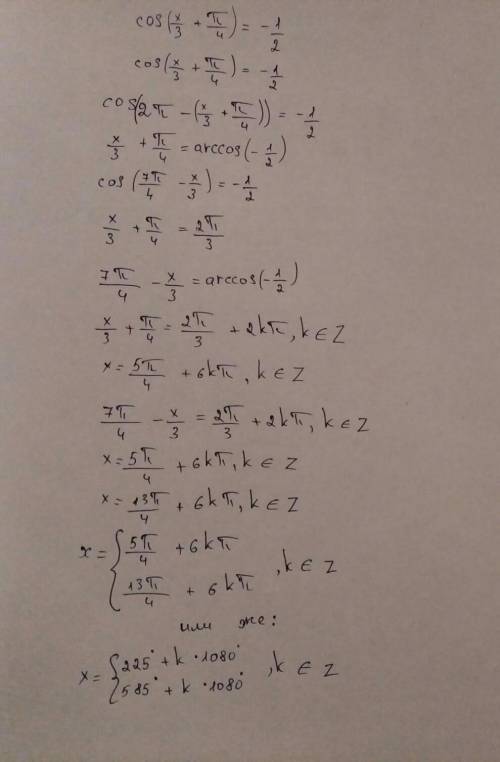 cos(x/3 + π/4) = -1/2
cos(x/3 + π/4) = -1/2
cos(2π - (x/3 + π/4)) = -1/2
x/3 + π/4 = arccos(-1/2)
cos(7π/4 - x/3) = -1/2
x/3 + π/4 = 2π/3
7π/4 - x/3 = arccos(-1/2)
x/3 + π/4 = 2π/3 + 2kπ, k ∈ Z
x = 5π/4 + 6kπ, k ∈ Z
7π/4 - x/3 = 2π/3 + 2kπ, k ∈ Z
x = 5π/4 + 6kπ, k ∈ Z
x = 13π/4 + 6kπ, k ∈ Z
x = { 5π/4 + 6kπ
13π/4 + 6kπ , k ∈ Z
или же:
x = { 225° + k · 1080°
585° + k · 1080° , k ∈ Z